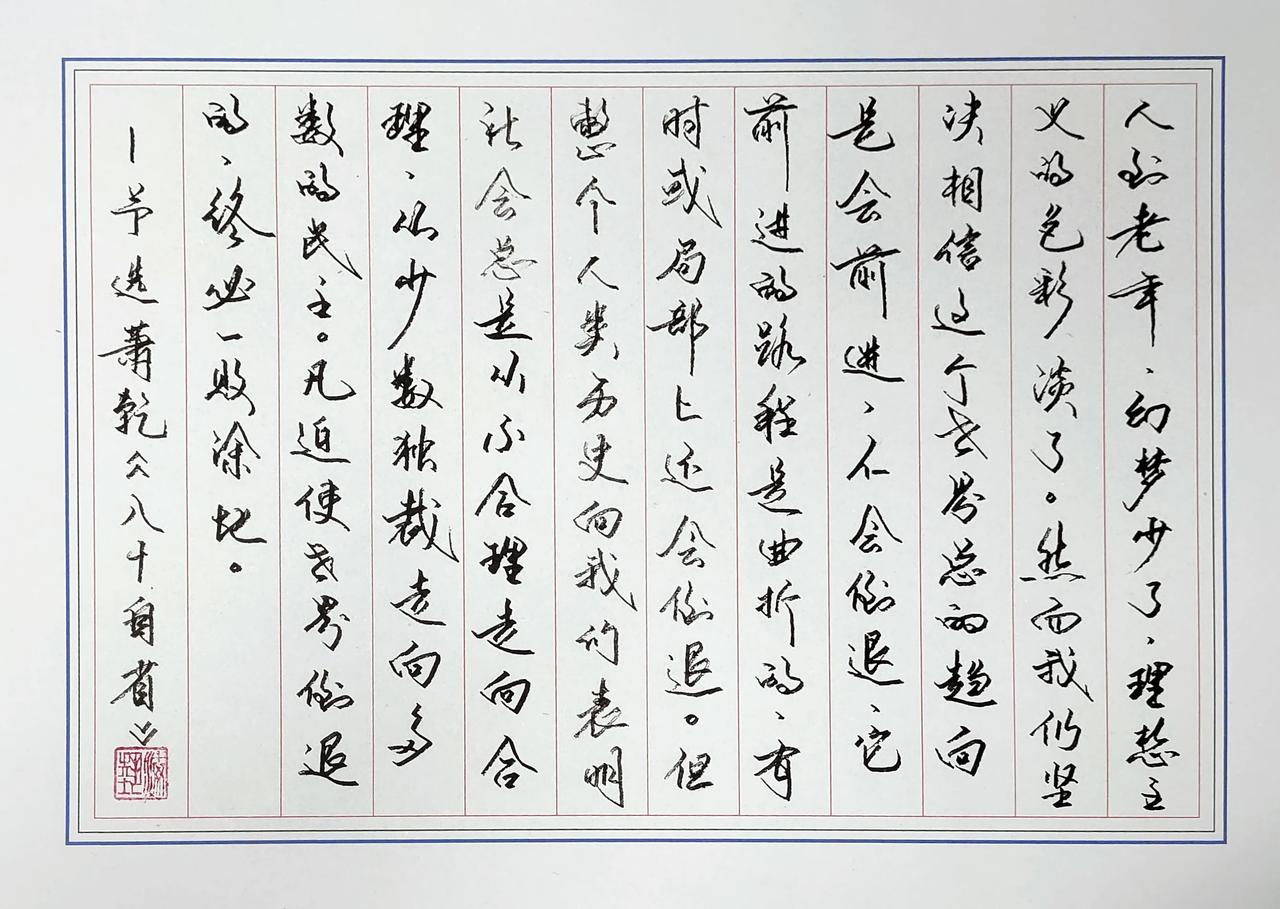 人到老年、幻梦少了、理想主
义的色彩淡了。然而我仍坚
决相信这个世界总的趋向
是会前进、不会倒退、它
前进的路程是曲折的、有
时或局部上还会倒退。但
整个人类历史向我们表明
社会总是从不合理走向合
理、从少数独裁走向多
数的民主。凡迫使世界倒退
的、终必一败涂地。
—节选萧乾《八十自省》